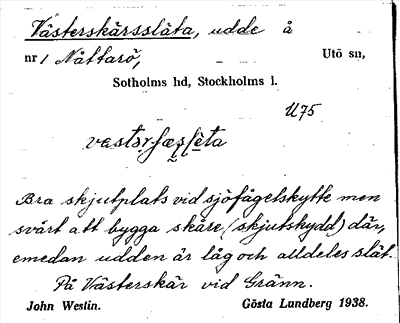 Västerskärssläta, udde å
nr 1 Nåttarö, Utö sn,
Sotholms hd, Stockholms l.
U75
Bra skjutplats vid sjöfågelskytte men
svårt att bygga skåre (skjutskydd) där,
emedan udden är låg och alldeles slät.
På Västerskär vid Gränn.
John Westin. Gösta Lundberg 1938.